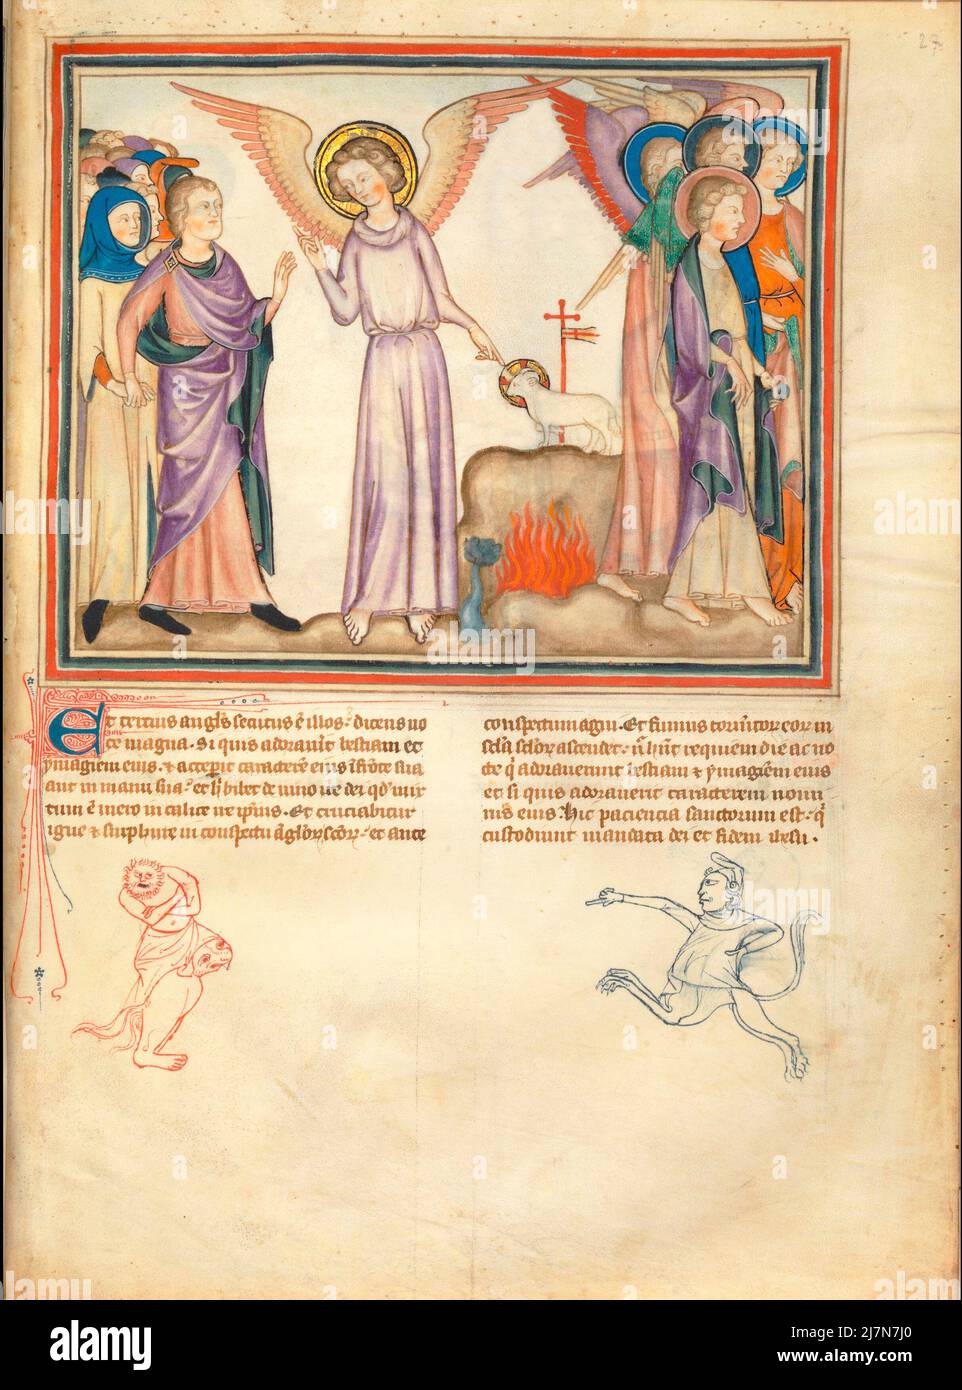 27
Et tercius angl's secutus ē illos: dicens uo
ce magna. Si quis adorau'it bestiam et
ymagiēm eius. & accep'it caracterē eius ī frōte sua
aut in manu sua: et h' bibet de uino ire dei qd' mix
tum ē mero in calice ire ip'ius. Et cruciabitur
igne & sulphure in conspectu āgl'or' scōr': et ante
conspectum agni. Et fumus torm'tor' eor' in
scl'a scl'or' ascendet: n' h'nt requiem die ac no
cte q' adorauerunt bestiam & ymagiēm eius
et si quis adorauerit caracterem nomi
nis eius. Hic paciencia sanctorum est: q'
custodiunt mandata dei et fidem ihesu.
alamy
Image ID: 2J7N7J0
www.alamy.com